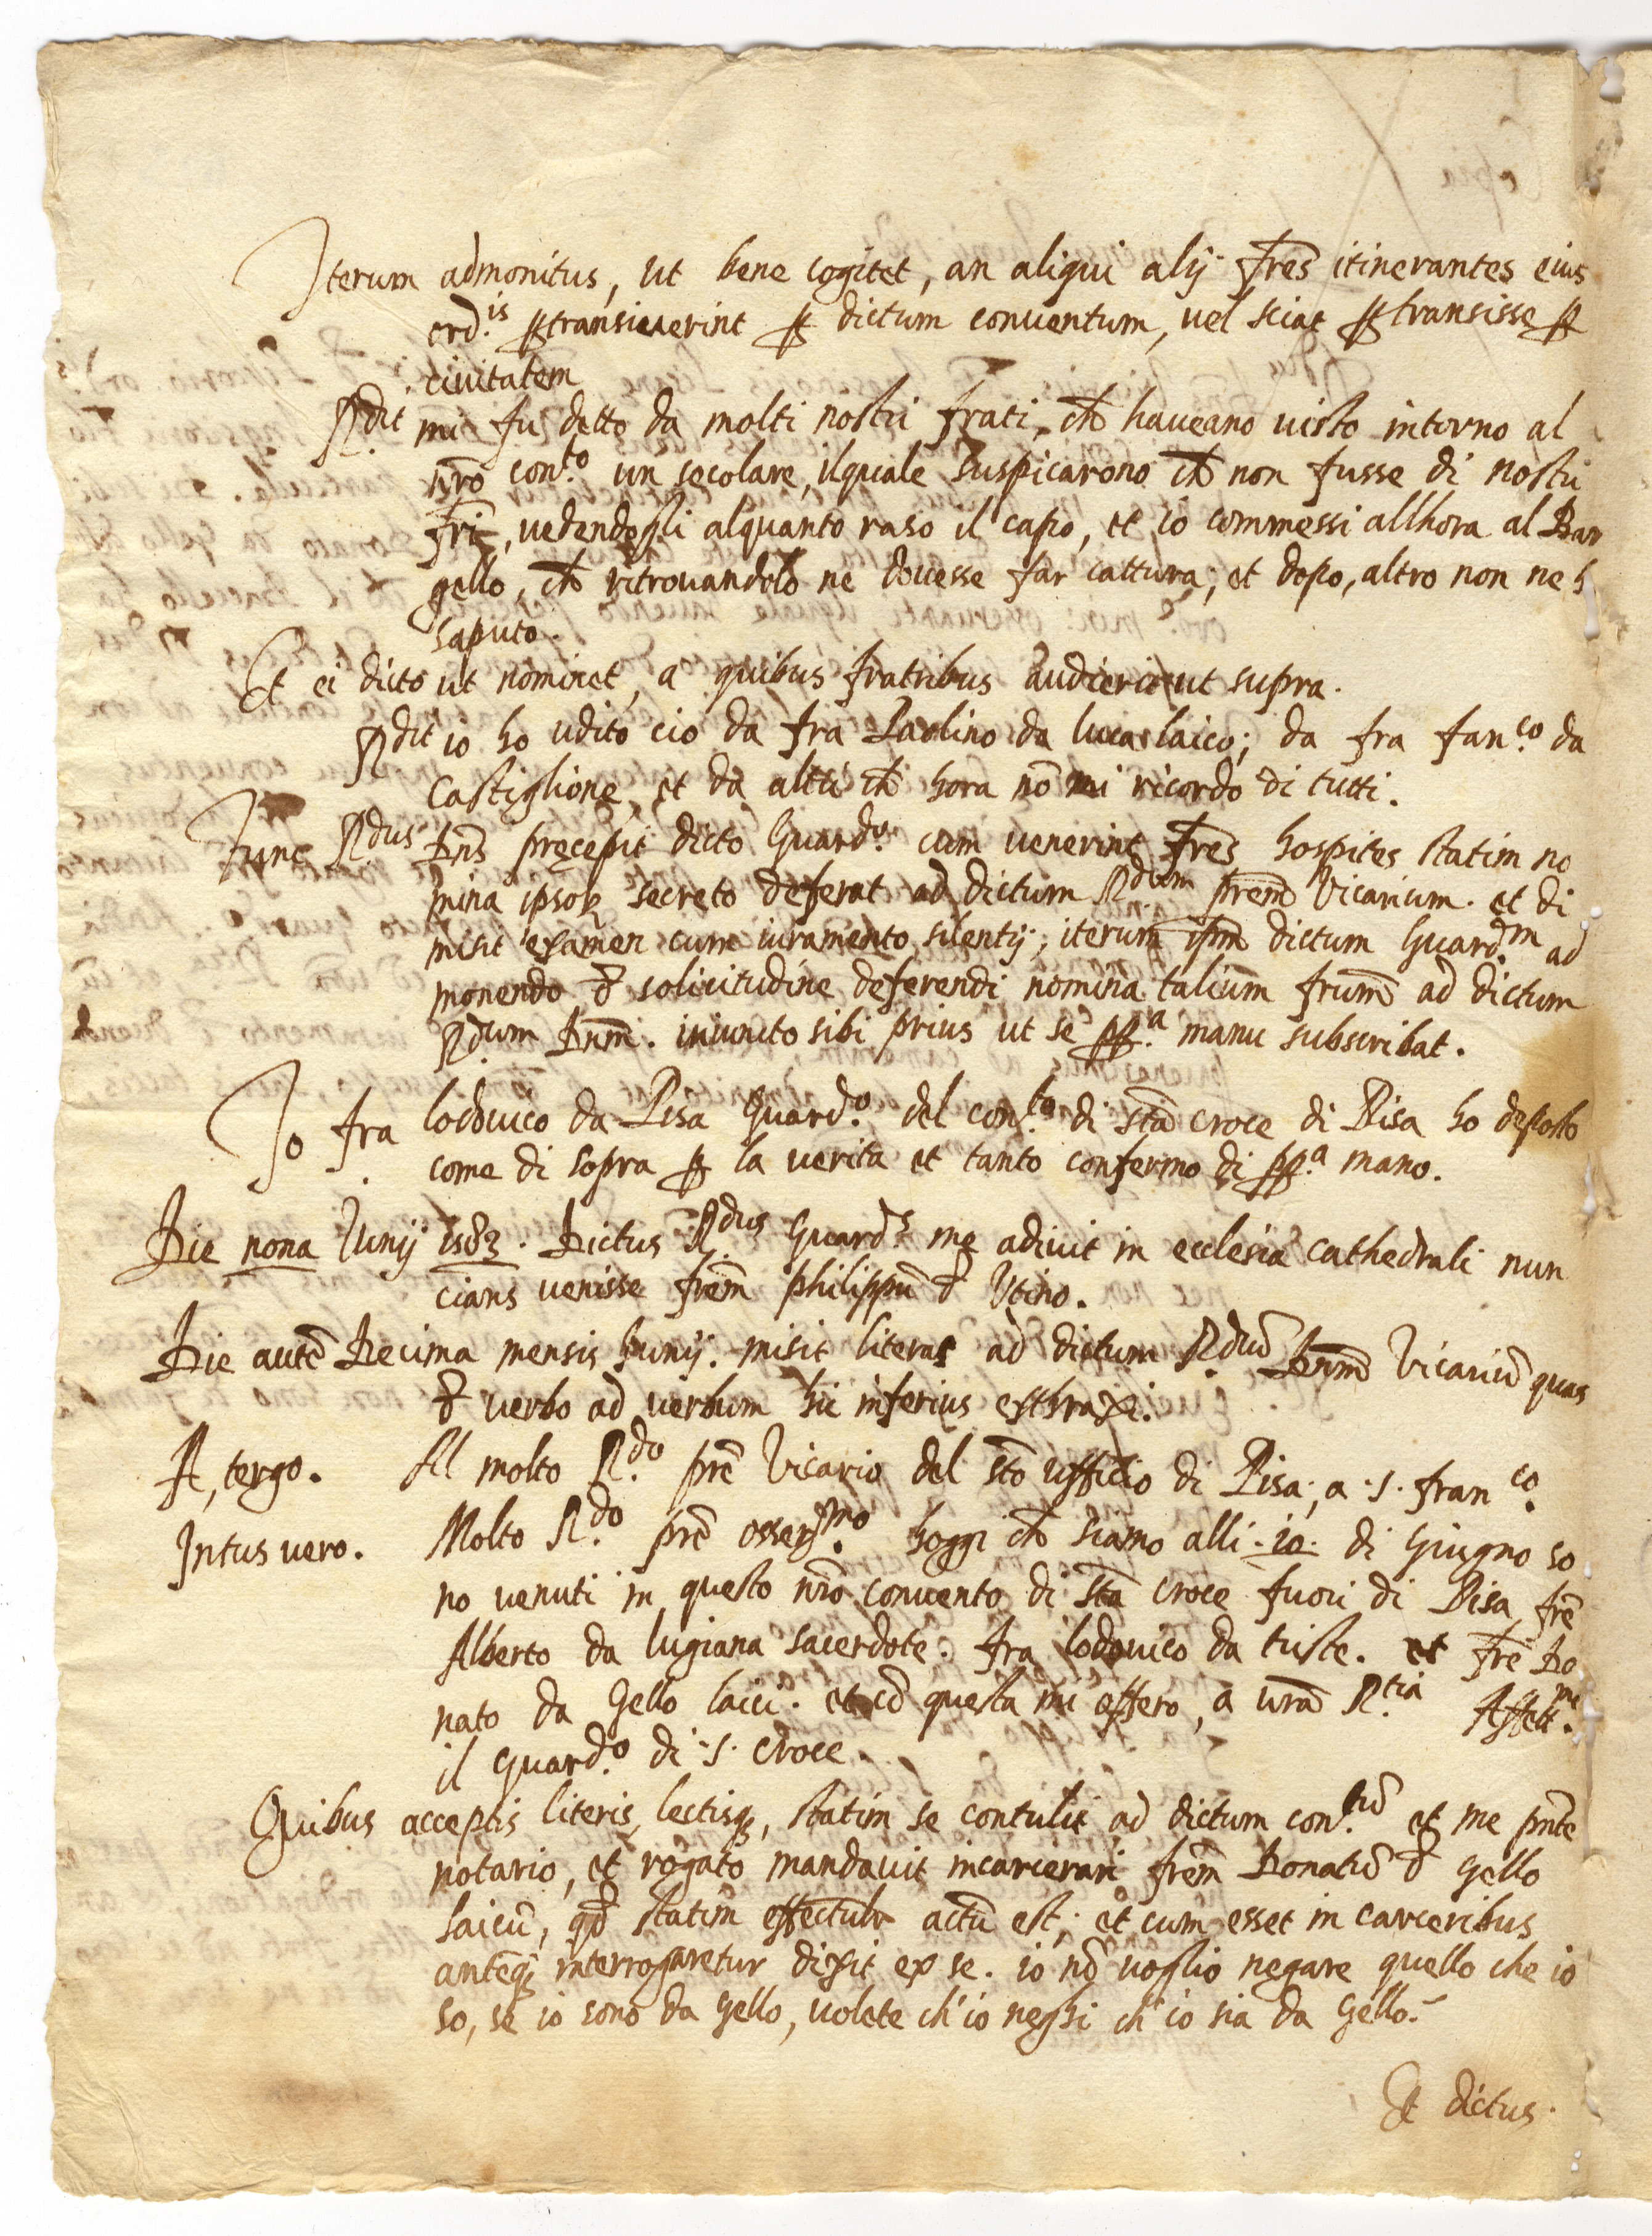 Iterum admonitus, ut bene cogitet, an aliqui alij fr̃es itinerantes eius
ord.is ꝑtransiverint ꝑ dictum conventum, vel sciat ꝑtransisse ꝑ
civitatem
R.dit mi fu detto da molti nostri frati, ch̃ haveano visto intorno al
nr̃o con.to un secolare, ilquale suspicarono ch̃ non fusse di nostri
fr̃i, vedendogli alquanto raso il capo, et io commessi allhora al Bar
gello, ch̃ ritrovandolo ne dovesse far cattura; et dopo, altro non ne h
saputo.
Et ei dicto ut nominet, a quibus fratribus audierit ut supra.
R.dit io ho udito cio da fra Paolino da lucca laico; da fra fan.co da
Castiglione, et da altri ch̃ hora nõ mi ricordo di tutti.
Tunc R.dus Dñs pręcepit dicto Guard.o cum venerint fr̃es hospites statim no
mina ipsoꝝ secreto deferat ad dictum R.dum pr̃em Vicarium. et di
misit examen cum iuramento silentij; iterum ip̃m dictum Guard.m ad
monendo đ solicitudine deferendi nomina talium fr̃um ad dictum
R.dum Dñm. iniuncto sibi prius ut se ꝓp.a manu subscribat.
Io fra lodovico da Pisa Guard.o del con.to di stã croce di Pisa ho deposto
come di sopra ꝑ la verita et tanto confermo di ꝓp.a mano.
Die nona Iunij 1583. Dictus R.dus Guard.s me adivit in ecclesia cathedrali nun
cians venisse fr̃em philippũ đ Utino.
Die autẽ Decima mensis Iunij. misit literas ad dictum R.dũ Dñm Vicariũ quas
đ verbo ad verbum hic inferius esthraxi.
A, tergo. Al molto R.do pr̃e Vicario del st̃o ufficio di Pisa, a .s. fran.co
Intus vero. Molto R.do pr̃e osser.mo hoggi ch̃ siamo alli .10. di Giugno so
no venuti in questo nr̃o convento di stã croce fuori di Pisa fr̃e
Alberto da lugiana sacerdote. fra lodovico da triste. et fr̃e Do
nato da Gello laici. et cõ questa mi offero, a vr̃a R.tia Affett.mo
il Guard.o di .s. croce.
Quibus acceptis literis, lectisq;, statim se contulit ad dictum con.tũ et me pñte
notario, et rogato mandavit incarcerari fr̃em Donatũ đ Gello
laicũ, qđ statim effectuļr actũ est; et cum esset in carceribus
anteq; interrogaretur dixit ex se. io nõ voglio negare quello che io
so, se io sono da gello, volete ch'io neghi ch'io sia da Gello?
Et dictus.